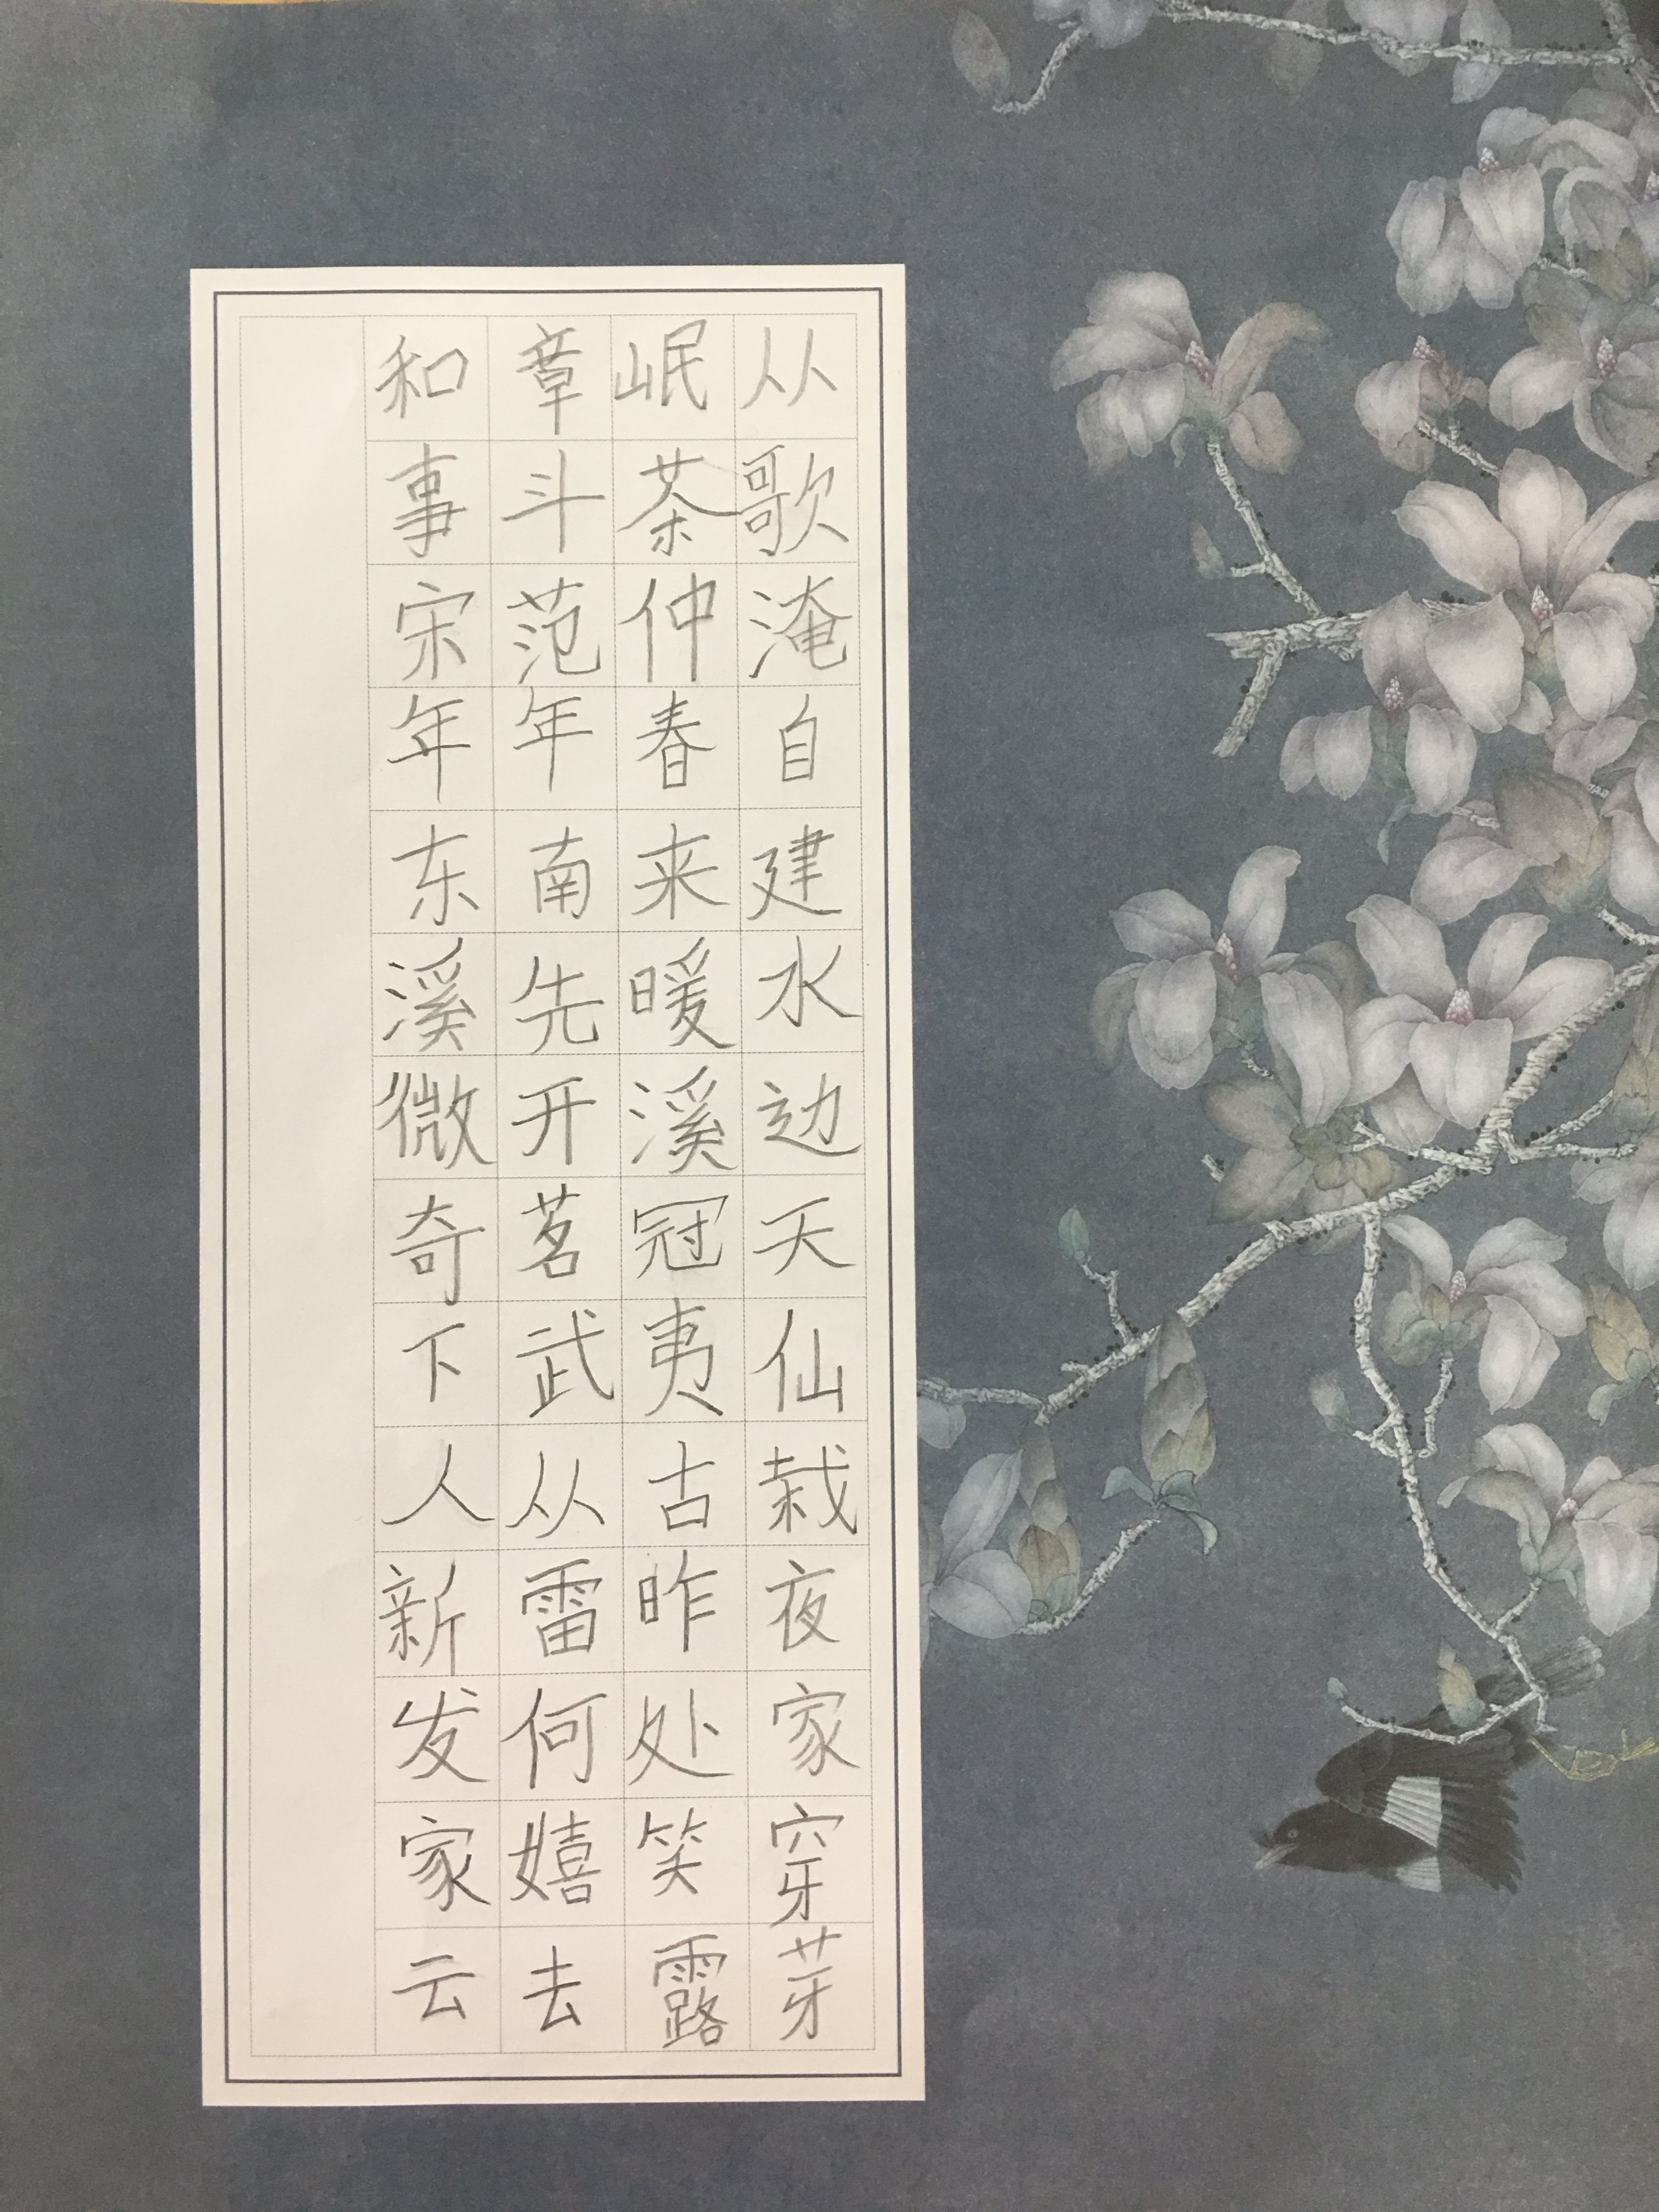 和章岷从
事斗茶歌
宋范仲淹
年年春自
东南来建
溪先暖水
微开溪边
奇茗冠天
下武夷仙
人从古栽
新雷昨夜
发何处家
家嬉笑穿
云去露芽